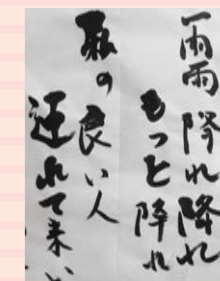 雨雨降れ降れ
もっと降れ
私の良い人
連れて来い